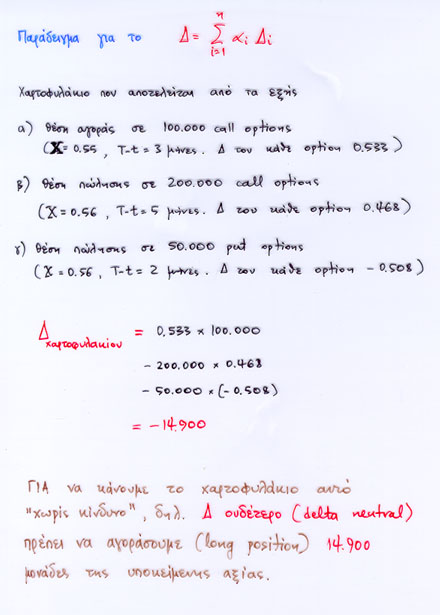 Παράδειγμα για το Δ = Σ αi Δi
n
i=1
Χαρτοφυλάκιο που αποτελείται από τα εξής
α) θέση αγοράς σε 100.000 call options
(X = 0.55, T-t = 3 μήνες. Δ του κάθε option 0.533)
β) θέση πώλησης σε 200.000 call options
(X = 0.56, T-t = 5 μήνες. Δ του κάθε option 0.468)
γ) θέση πώλησης σε 50.000 put options
(X = 0.56, T-t = 2 μήνες. Δ του κάθε option -0.508)
Δ χαρτοφυλακίου = 0.533 × 100.000
- 200.000 × 0.468
- 50.000 × (-0.508)
= -14.900
ΓΙΑ να κάνουμε το χαρτοφυλάκιο αυτό
"χωρίς κίνδυνο", δηλ. Δ ουδέτερο (delta neutral)
πρέπει να αγοράσουμε (long position) 14.900
μονάδες της υποκείμενης αξίας.